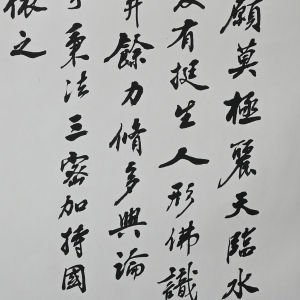 願莫極麗天臨水
有挺生人形佛識
餘力脩多興論
秉法三密加持國
依之